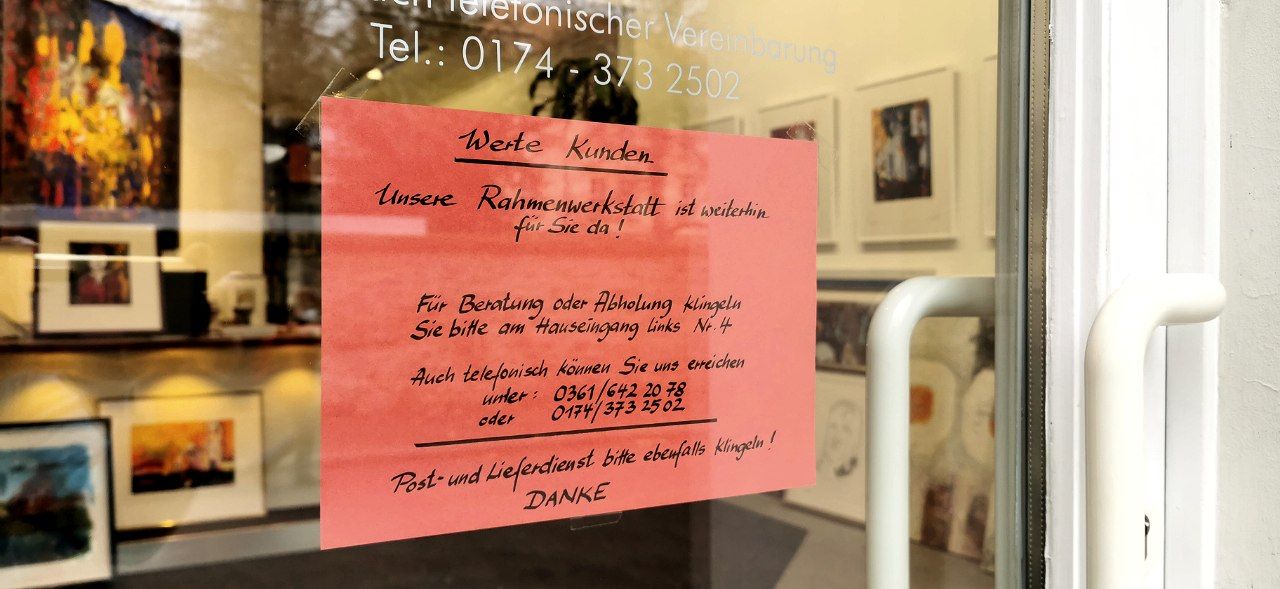 telefonischer Vereinbarung
Tel.: 0174 - 373 2502
Werte Kunden
Unsere Rahmenwerkstatt ist weiterhin
für Sie da!
Für Beratung oder Abholung klingeln
Sie bitte am Hauseingang links Nr. 4
Auch telefonisch können Sie uns erreichen
unter: 0361/642 20 78
oder 0174/373 25 02
Post- und Lieferdienst bitte ebenfalls klingeln!
DANKE